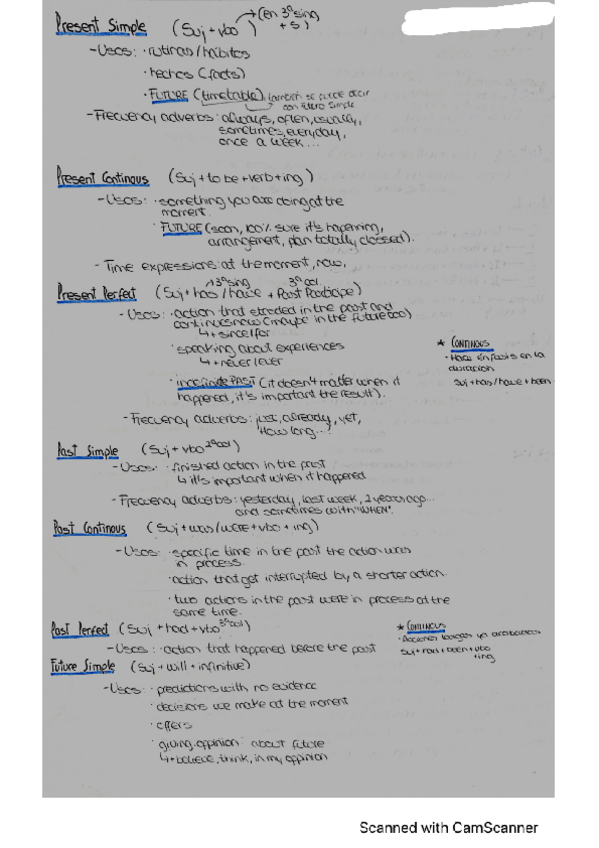 Present Simple (Suj + vbo) → (en 3ª sing + s)
- Usos: · rutinas / hábitos
· hechos (facts)
· FUTURE (timetable), también se puede decir
con futuro simple
- Frecuency adverbs: always, often, usually,
sometimes, everyday,
once a week...
Present Continous (Suj + to be + verb + ing)
- Usos: · something you are doing at the
moment.
· FUTURE (soon, 100% sure it's happening,
arrangement, plan totally closed).
- Time expressions: at the moment, now,
Present Perfect (Suj + has / have + Past Participe)
3ª sing 3ª col.
- Usos: · action that started in the past and
continues now (maybe in the future too)
↳ + since / for
· speaking about experiences
↳ + never / ever
· indefinite PAST (it doesn't matter when it
happened, it's important the result).
- Frecuency adverbs: just, already, yet,
How long...?
* Continous
· Hace énfasis en la
duración
Suj + has / have + been
Past Simple (Suj + vbo 2ª col)
- Usos: · finished action in the past
↳ it's important when it happened
- Frecuency adverbs: yesterday, last week, 2 years ago...
and sometimes with "WHEN".
Past Continous (Suj + was / were + vbo + ing)
- Usos: · specific time in the past the action was
in process.
· action that get interrupted by a shorter action.
· two actions in the past were in process at the
same time.
Past Perfect (Suj + had + vbo 3ª col)
- Usos: · action that happened before the past
* Continous
· Acciones largas ya
Suj + + been + vbo
+ ing
Future Simple (Suj + will + infinitive)
- Usos: · predictions with no evidence
· decisions we make at the moment
· offers
· giving opinion about future
↳ + believe, think, in my opinion
Scanned with CamScanner